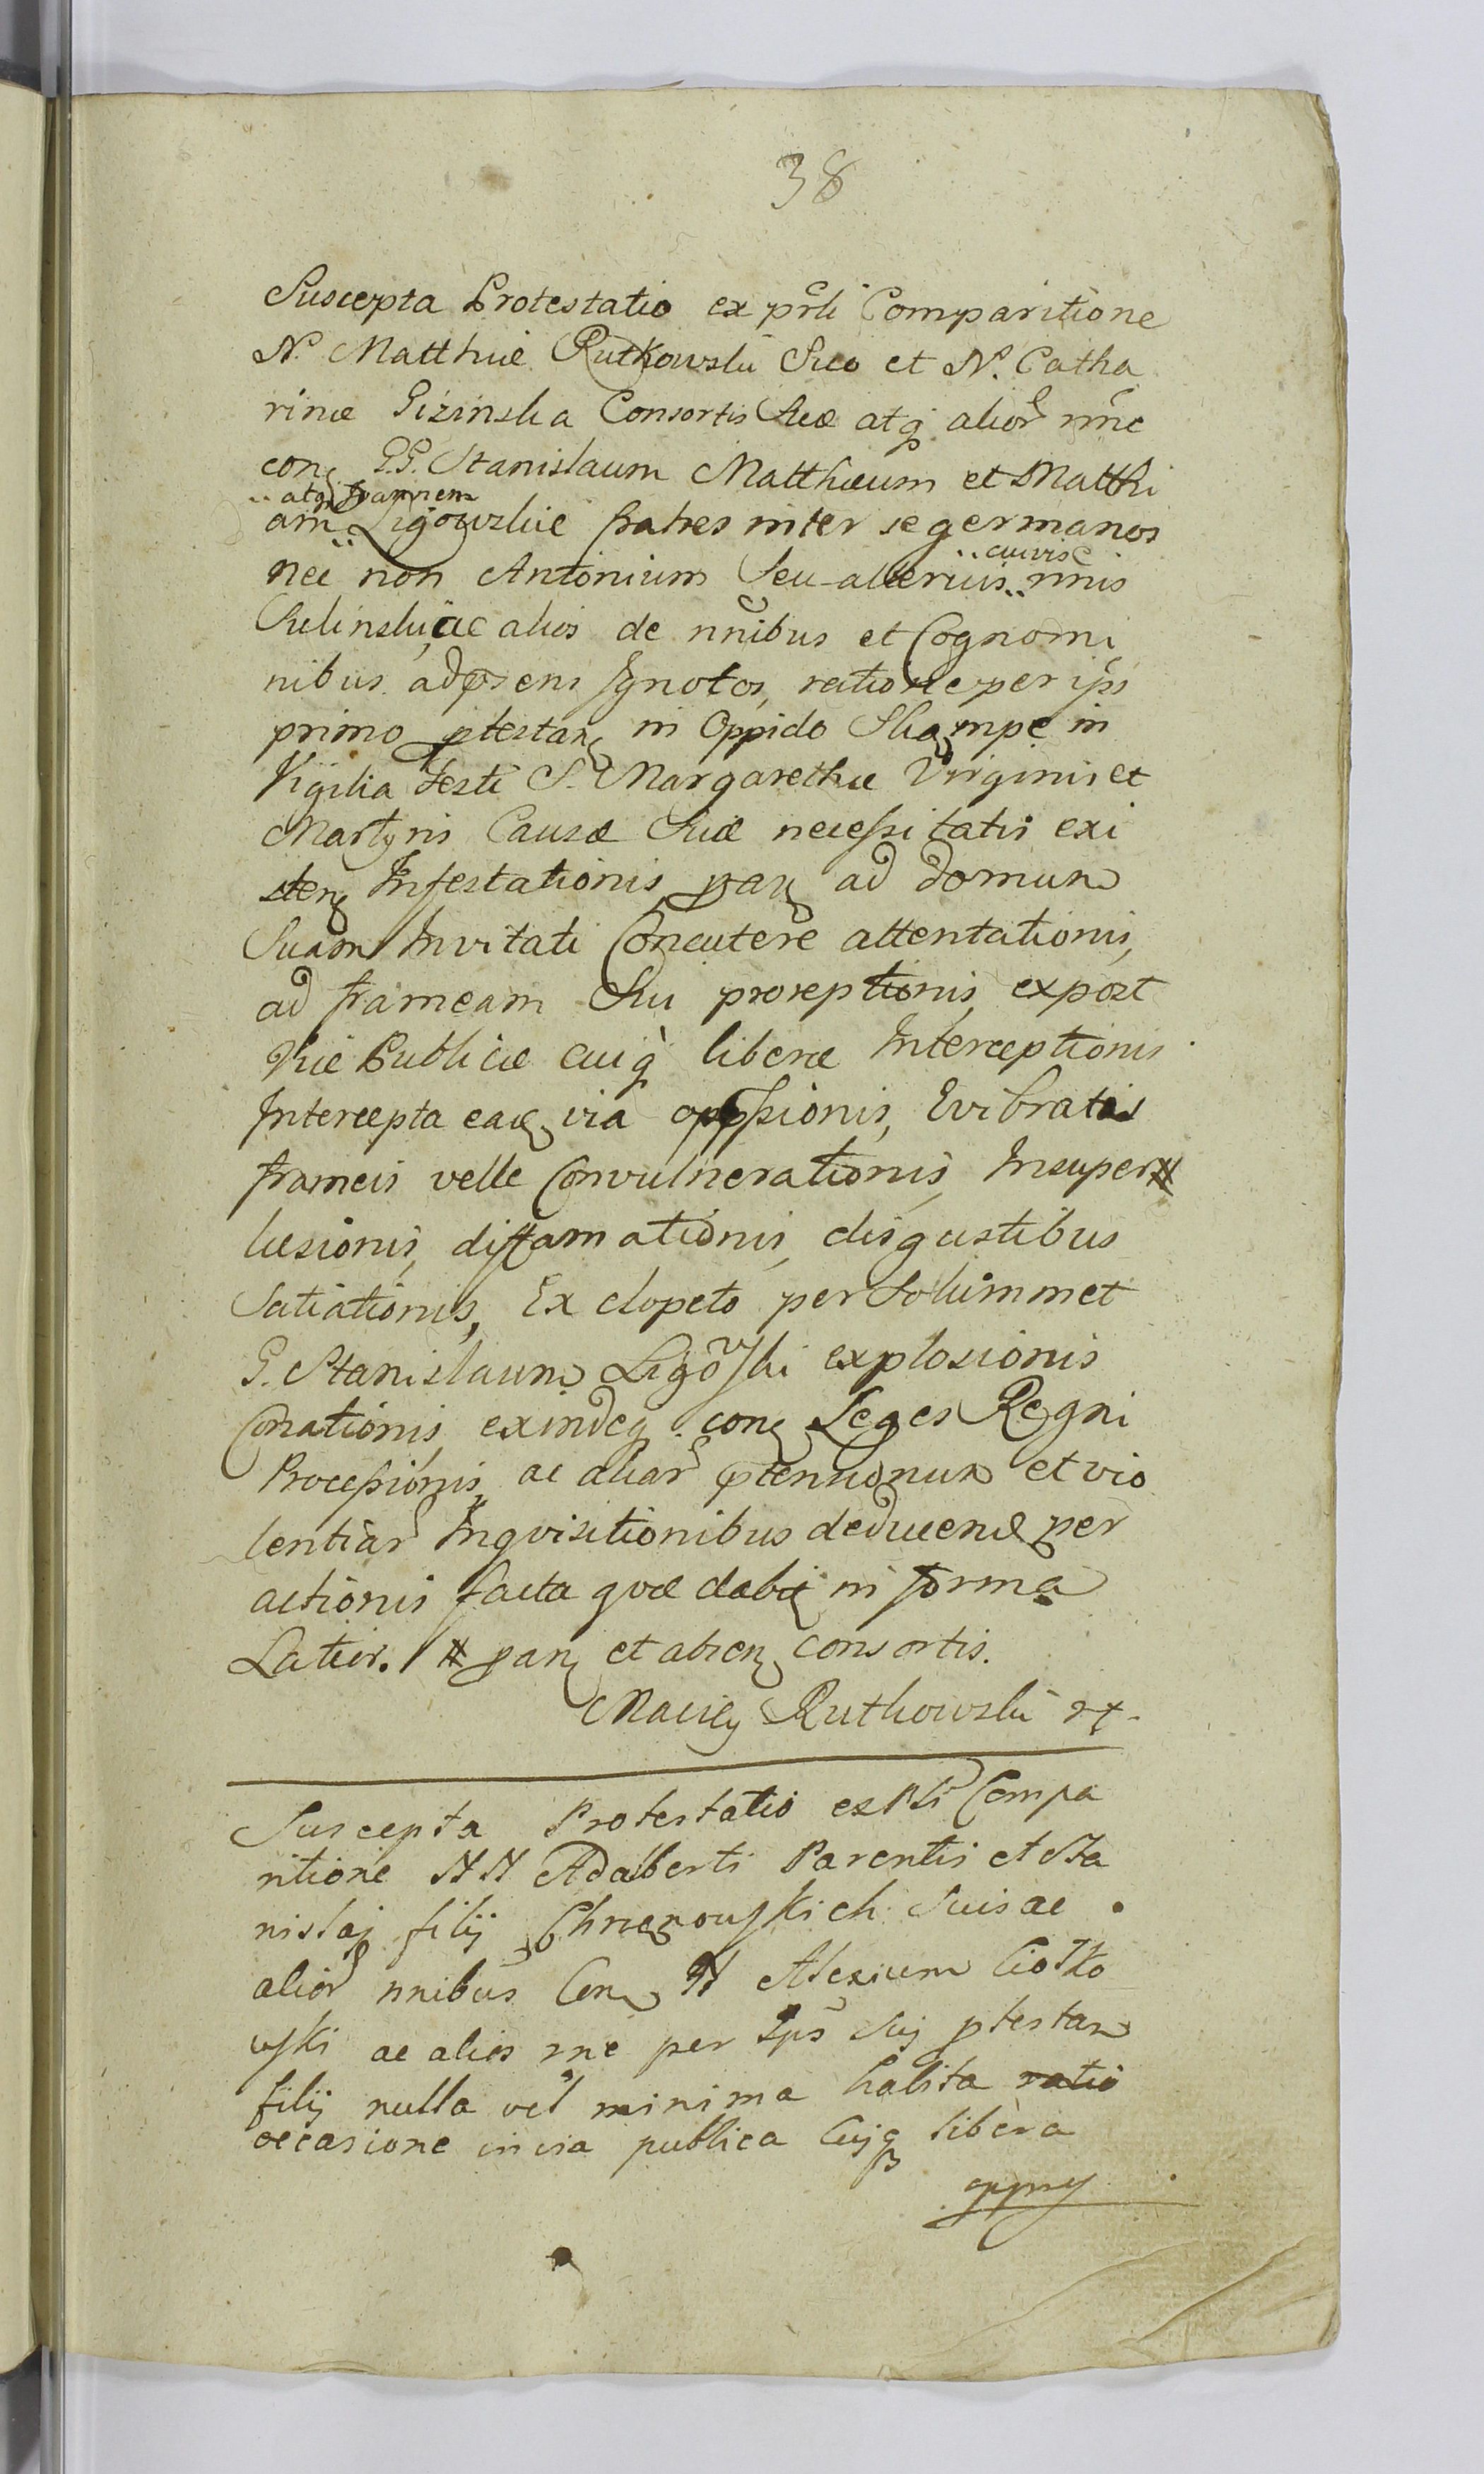 38
Suscepta Protestatio ex prli Comparitione
N. Matthiæ Rutkowski Suo et N. Catha
rinæ Gizinska Consortis Suæ atq alior nnc
con G.G. Stanislaum Matthæum et Matthi
.. atq Joannem
am Ligowskie fratres inter se germanos
.. cuivis
nec non Antonium Seu alterius .. nnis
Sulinski, ac alios de nnibus et Cognomi
nibus ad psens Ignotos, ratione per ips
primo ptestan in Oppido Skąmpe in
Vigilia Festi S. Margarethæ Virginis et
Martyris Causæ Suæ necessitatis exi
sten Infestationis, pan ad domum
Suam Invitati Concutere attentationis,
ad frameam Sui proreptionis, expost
Viæ Publicæ cuiq liberæ Interceptionis
Intercepta eaq via oppssionis, Evibratis
frameis velle Convulnerationis, Insuper #
læsionis, diffamationis, disgustibus
Satiationis, Ex clopeto per Solummet
G. Stanislaum Ligowski explosionis
Conationis, exindeq con Leges Regni
Processionis, ac aliar ptensionum et vio
lentiar Inqvisitionibus deducend per
actionis facta qvæ dabit in forma
Latior. / # pan et absen consortis.
Maciey Rutkowski
Suscepta Protestatio ex Prli Compa
ritione NN Adalberti Parentis et Sta
nislaj filij Chrzęnowskich Suis ac
alior nnibus Con N Alexium Ciołko
wski ac alios nne per Ips Sui ptestan
filij nulla vel minima habita ratio
occasione in via publica Cuiq libera